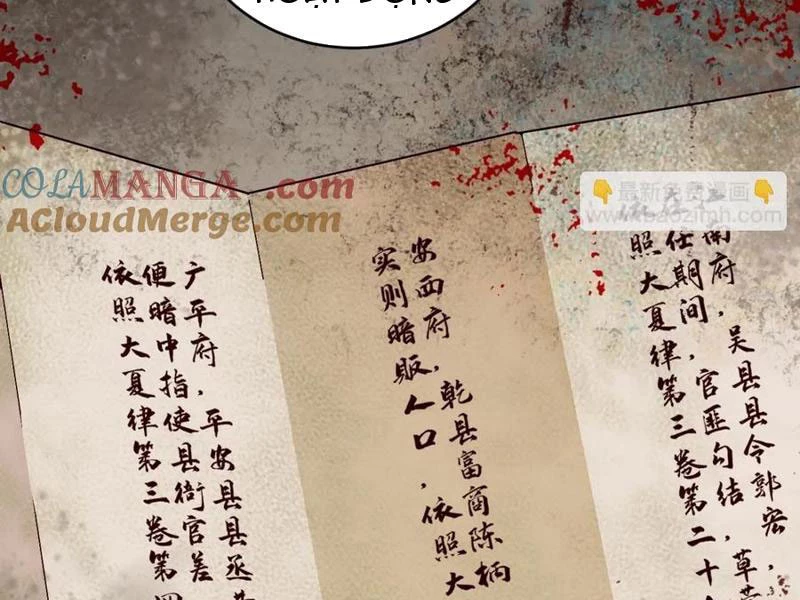 COLAMANGA.com
ACloudMerge.com
👇最新免费漫画👇
www.baozimh.com
南府，吴县县令郭宏，
任期间，官匪勾结，草
照大夏律第三卷第二十
安西府，乾县富商陈柄
实则暗贩人口，依照大
广平府，平安县县丞
便暗中指使县衙官差
依照大夏律第三卷第四